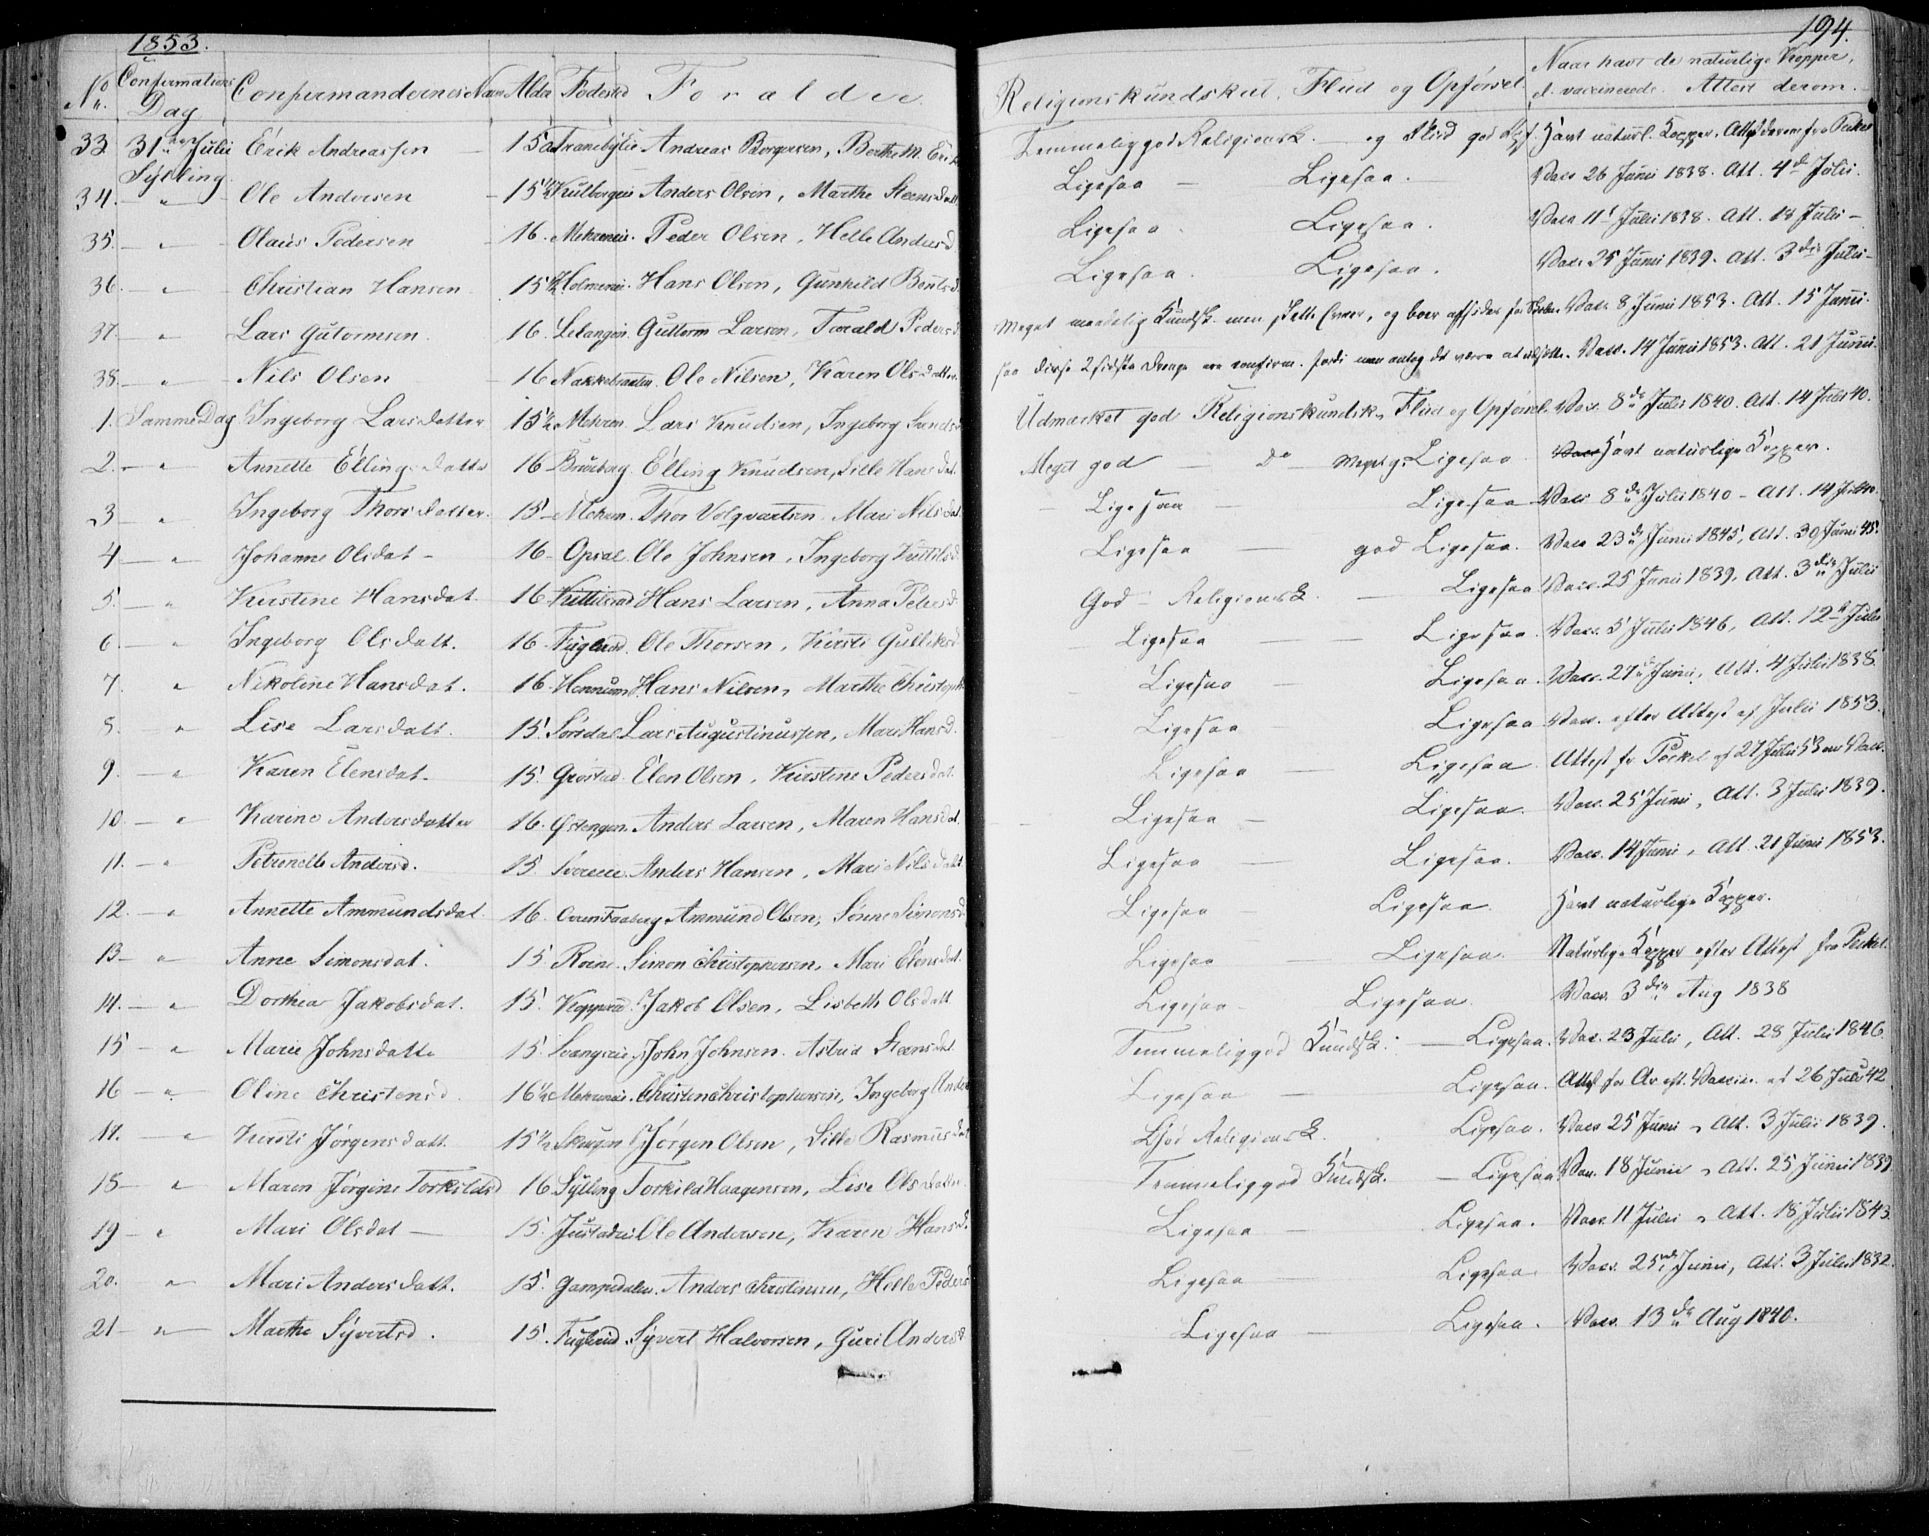 1853.
194.
No Confirmations Dag Confirmandernes Navn Alder Fødested Forældre Religionskundskab, Flid og Opførsel Naar havt de naturlige Kopper, el. vaccinerede. Attest derom.
33 31te Julii Sylling Erik Andreassen 15 Andreas Borgersen, Berthe M. Temmelig god Religionsk. og Flid god Havt naturl. Kopper. Attest derom fra
34. " Ole Andersen 15½ Anders Olsen, Marthe Steensdatt Ligesaa Ligesaa. Vacc 26 Junii 1838. Att. 4de Julii.
35. " Olaus Pedersen 16. Mehreneie. Peder Olsen, Helle Andersd Ligesaa. Ligesaa. Vacc 11t Julii 1838. Att. 18 Julii
36. " Christian Hansen 15½ Holmeneie. Hans Olsen, Gunhild Bentsd. Ligesaa. Ligesaa. Vacc 25 Junii 1839. Att. 3die Julii
37. " Lars Gutormsen 16. Guttorm Larsen, Torald Pedersd Meget maadelig Kundsk. men skikkelig og boer afsides fra Skolen Vacc. 8 Junii 1853. Att. 15 Junii.
38. " Nils Olsen 16 Ole Nilsen, Karen Olsdatter. saa disse 2 sidste Drenge ere confirm. fordi man antog det være at udsætte. Vacc. 14 Junii 1853. Att. 21 Junii.
1. Samme Dag Ingeborg Larsdatter 15½ Mehren. Lars Knudsen, Ingeborg Udmærket god Religionskundsk, Flid og Opførsel. Vacc. 8de Julii 1840. Att. 14 Julii 40.
2. " Annette Ellingsdatter 16 Elling Knudsen, Sille Hansdat. Meget god Do Meget g. Ligesaa Havt naturlige Kopper.
3 " Ingeborg Thorsdatter. 15 Mehren. Thor Volqvartsen. Mari Nilsdat Ligesaa Ligesaa Vacc 8de Julii 1840 - Att. 14 Julii 40.
4 " Johanne Olsdat 16 Opsal Ole Johnsen, Ingeborg Ligesaa god Ligesaa. Vacc 23de Junii 1845, Att. 30 Junii 45.
5. " Kirstine Hansdat. 16 Hans Larsen, Anna Petersd. God Religionsk. Ligesaa Vacc. 25 Junii 1839, Att. 3die Julii
6 " Ingeborg Olsdatt. 16 Fuglerud. Ole Thorsen, Kirsti Gulliksd Ligesaa Ligesaa. Vacc. 5 Julii 1846, Att. 12te Julii
7. " Nikoline Hansdat. 16 Hennum Hans Nilsen, Marthe Christoph Ligesaa Ligesaa. Vacc. 27de Junii, Att. 4 Julii 1838.
8. " Lise Larsdatt. 15. Sørsdal Lars Augustinussen, Mari Hansd. Ligesaa Ligesaa Vacc. efter Attest af Julii 1853.
9. " Karen Elensdat. 15. Grøstad. Elen Olsen, Kirstine Pedersdat. Ligesaa Ligesaa. Attest fr. af 27 Julii 53 om Vacc.
10. " Karine Andersdatter 16. Østengen. Anders Larsen, Maren Hansdat. Ligesaa Ligesaa. Vacc. 25 Junii, Att. 3 Julii 1839.
11. " Petronelle Andersd. 15 Anders Hansen, Mari Nilsdatt Ligesaa Ligesaa. Vacc. 14 Junii, Att. 21 Junii 1853.
12. " Annette Ammundsdat. 16. Ammund Olsen, Sønne Simonsd. Ligesaa Ligesaa Havt naturlige Kopper.
13 " Anne Simonsdat. 15 Roine. Simon Christophersen, Mari Elensdat. Ligesaa Ligesaa. Naturlige Kopper efter Attest fra
14. " Dorthea Jakobsdat. 15. Jakob Olsen, Lisbeth Olsdatt Ligesaa Ligesaa. Vacc. 3die Aug 1838
15 " Marie Johnsdatte 15. John Johnsen. Astrid Steensdat. Temmelig god Kundsk. Ligesaa. Vacc. 23 Julii, Att. 28 Julii 1846
16 " Oline Christensd. 16½ Mehreneie. Christen Christophersen, Ingeborg Anders Ligesaa Ligesaa. Attest for at 26 Julii 42
17. " Kirsti Jørgensdatt. 15½ Jørgen Olsen, Sille Rasmusdat God Religionsk. Ligesaa. Vacc 25 Junii, Att. 3 Julii 1839.
18 " Maren Jørgine Torkildsd 16 Sylling Torkild Haagensen, Lise Olsdatter. Temmelig god Kundsk. Ligesaa. Vacc. 18 Junii, Att. 25 Junii 1839
19 " Mari Olsdat 15. Justadeie Ole Andersen, Karen Hansd. Ligesaa Ligesaa. Vacc. 11 Julii, Att. 18 Julii 1843.
20. " Mari Andersdatt. 15. Gampedalen. Anders Christensen, Helle Pedersd Ligesaa Ligesaa. Vacc. 25de Junii, Att. 3 Julii 1832.
21 " Marthe Syvertsd. 15. Fuglerud Syvert Halvorsen, Guri Andersd Ligesaa Ligesaa. Vacc. 13de Aug 1840.